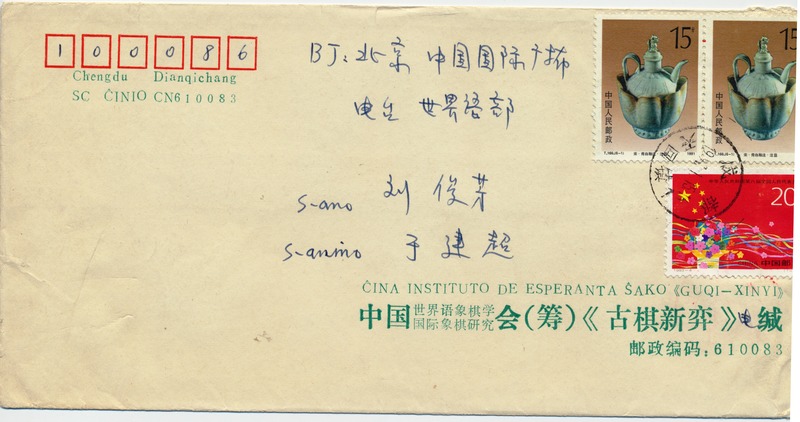 1 0 0 0 8 6
Chengdu Dianqichang
SC ĈINIO CN610083
BJ: 北京 中国国际广播
电台 世界语部
S-ano 刘俊芳
S-anino 于建超
15分
中国人民邮政
15
中国人民邮政
20
ĈINA INSTITUTO DE ESPERANTA ŜAKO《GUQI-XINYI》
中国世界语象棋学国际象棋研究会(筹)《古棋新弈》电缄
邮政编码:610083